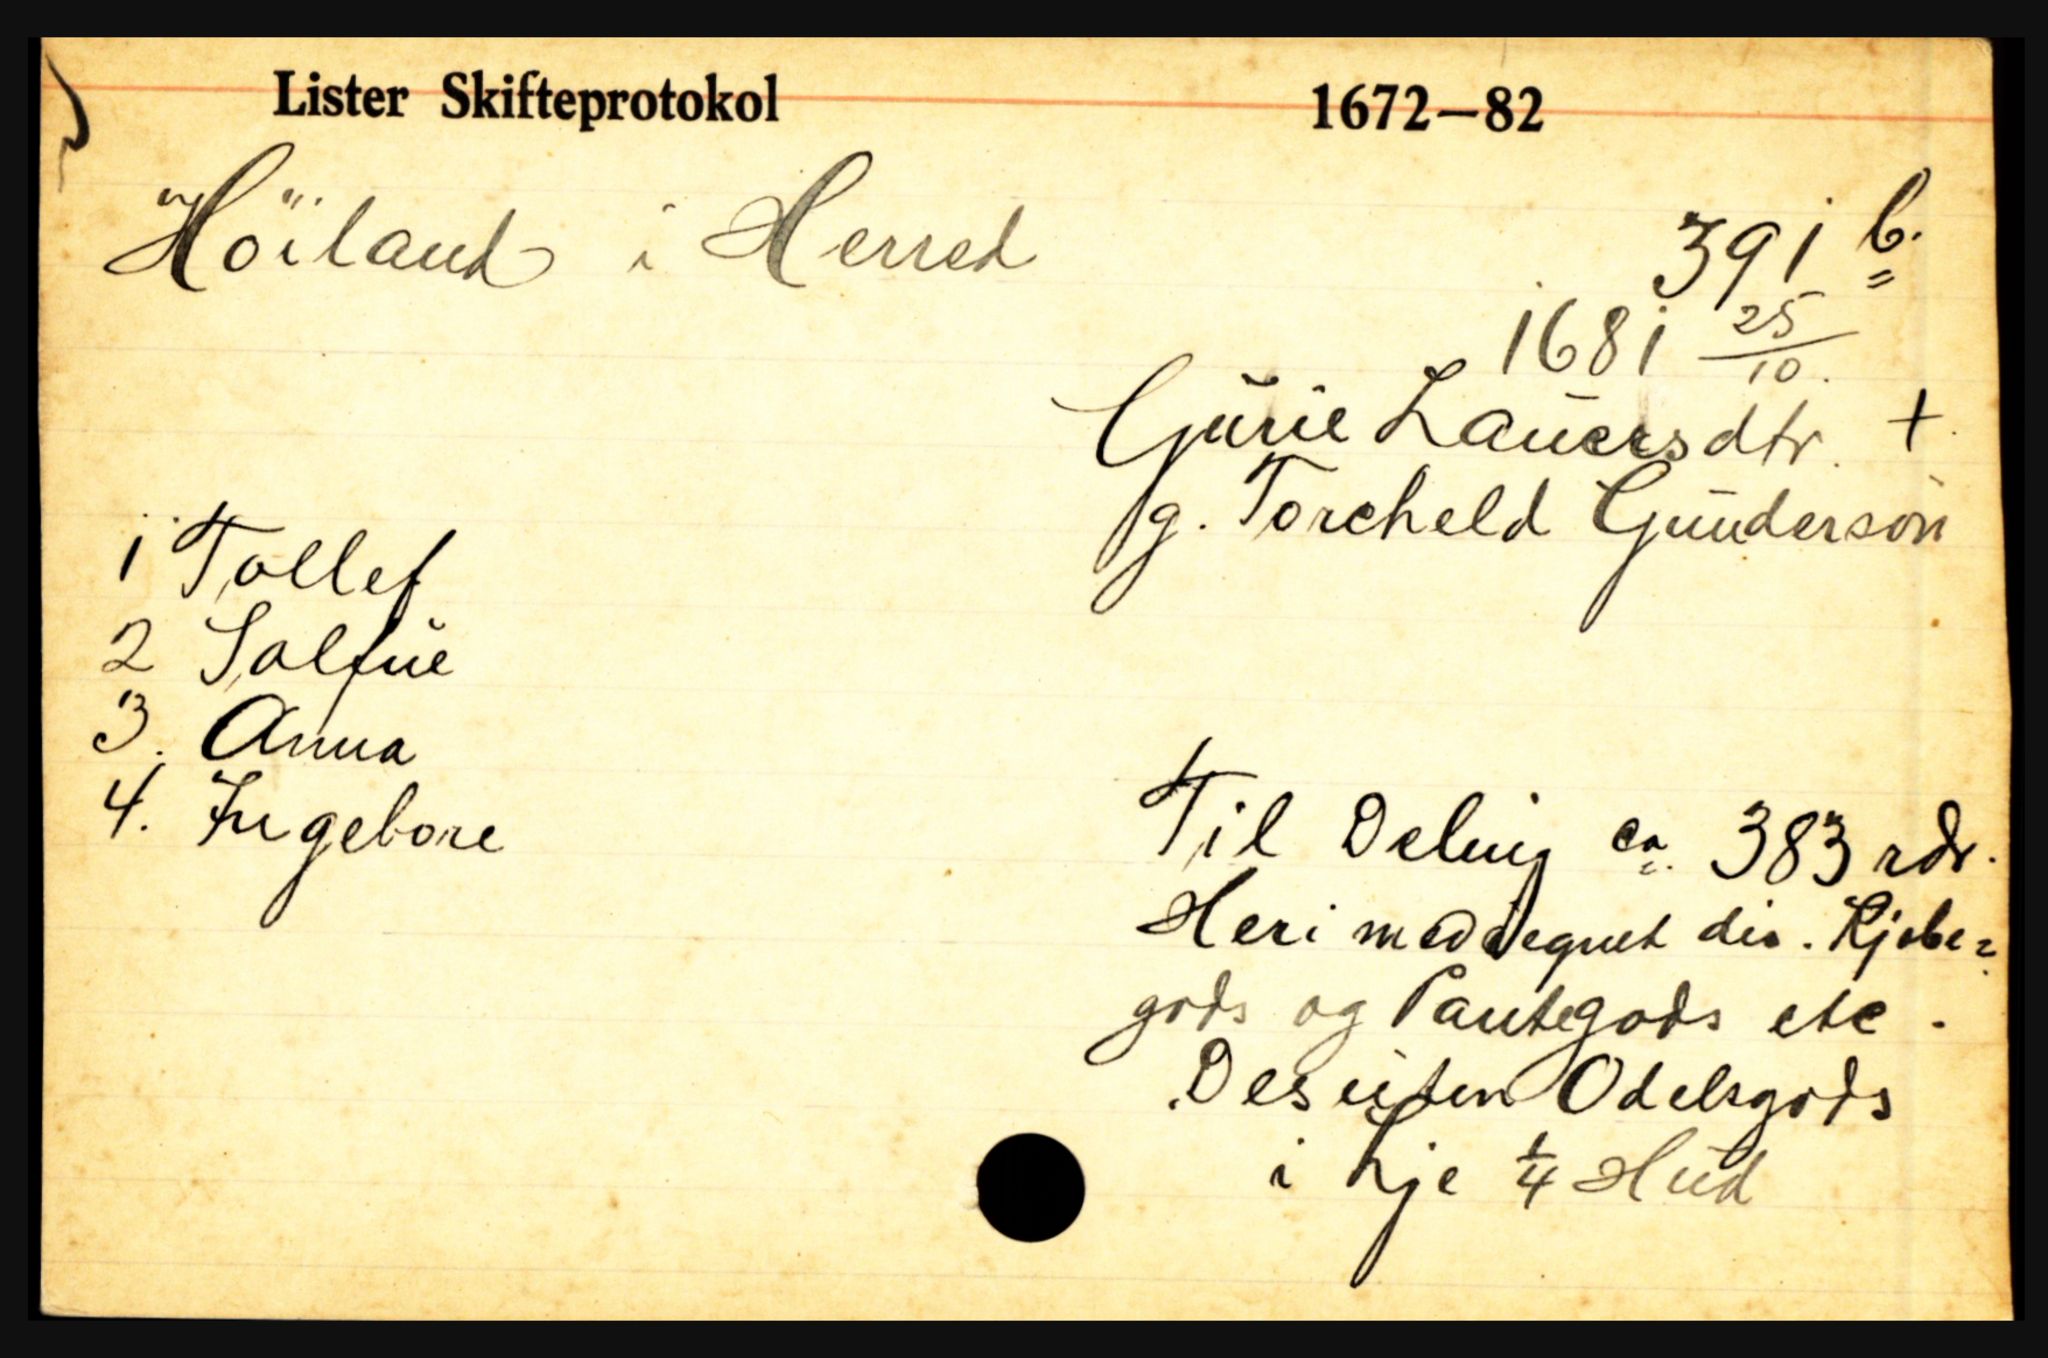 Lister Skifteprotokol 1672–82
Höiland i Herred
391 b.
1681 25/10.
Gurie Lauersdtr. +
g. Torcheld Gunderson
1 Tollef
2 Salfue
3. Anna
4. Ingebore
Til Deling ca. 383 rdr.
Heri medregnet div. Kjøbe=
gods og Pantegods etc.
Desuten Odelsgods
i Lje 1/4 Hud